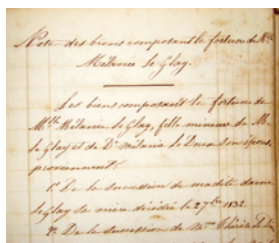 Note des biens composant la fortune de Mlle
Mélanie le Glay.
Les biens composant la fortune de
Mlle Mélanie le Glay, fille mineure de M.
le Glay et de De Mélanie le Duc son épouse,
proviennent:
1° De la succession de madite dame
le Glay sa mère décédée le 27 1832.
2° De la succession de